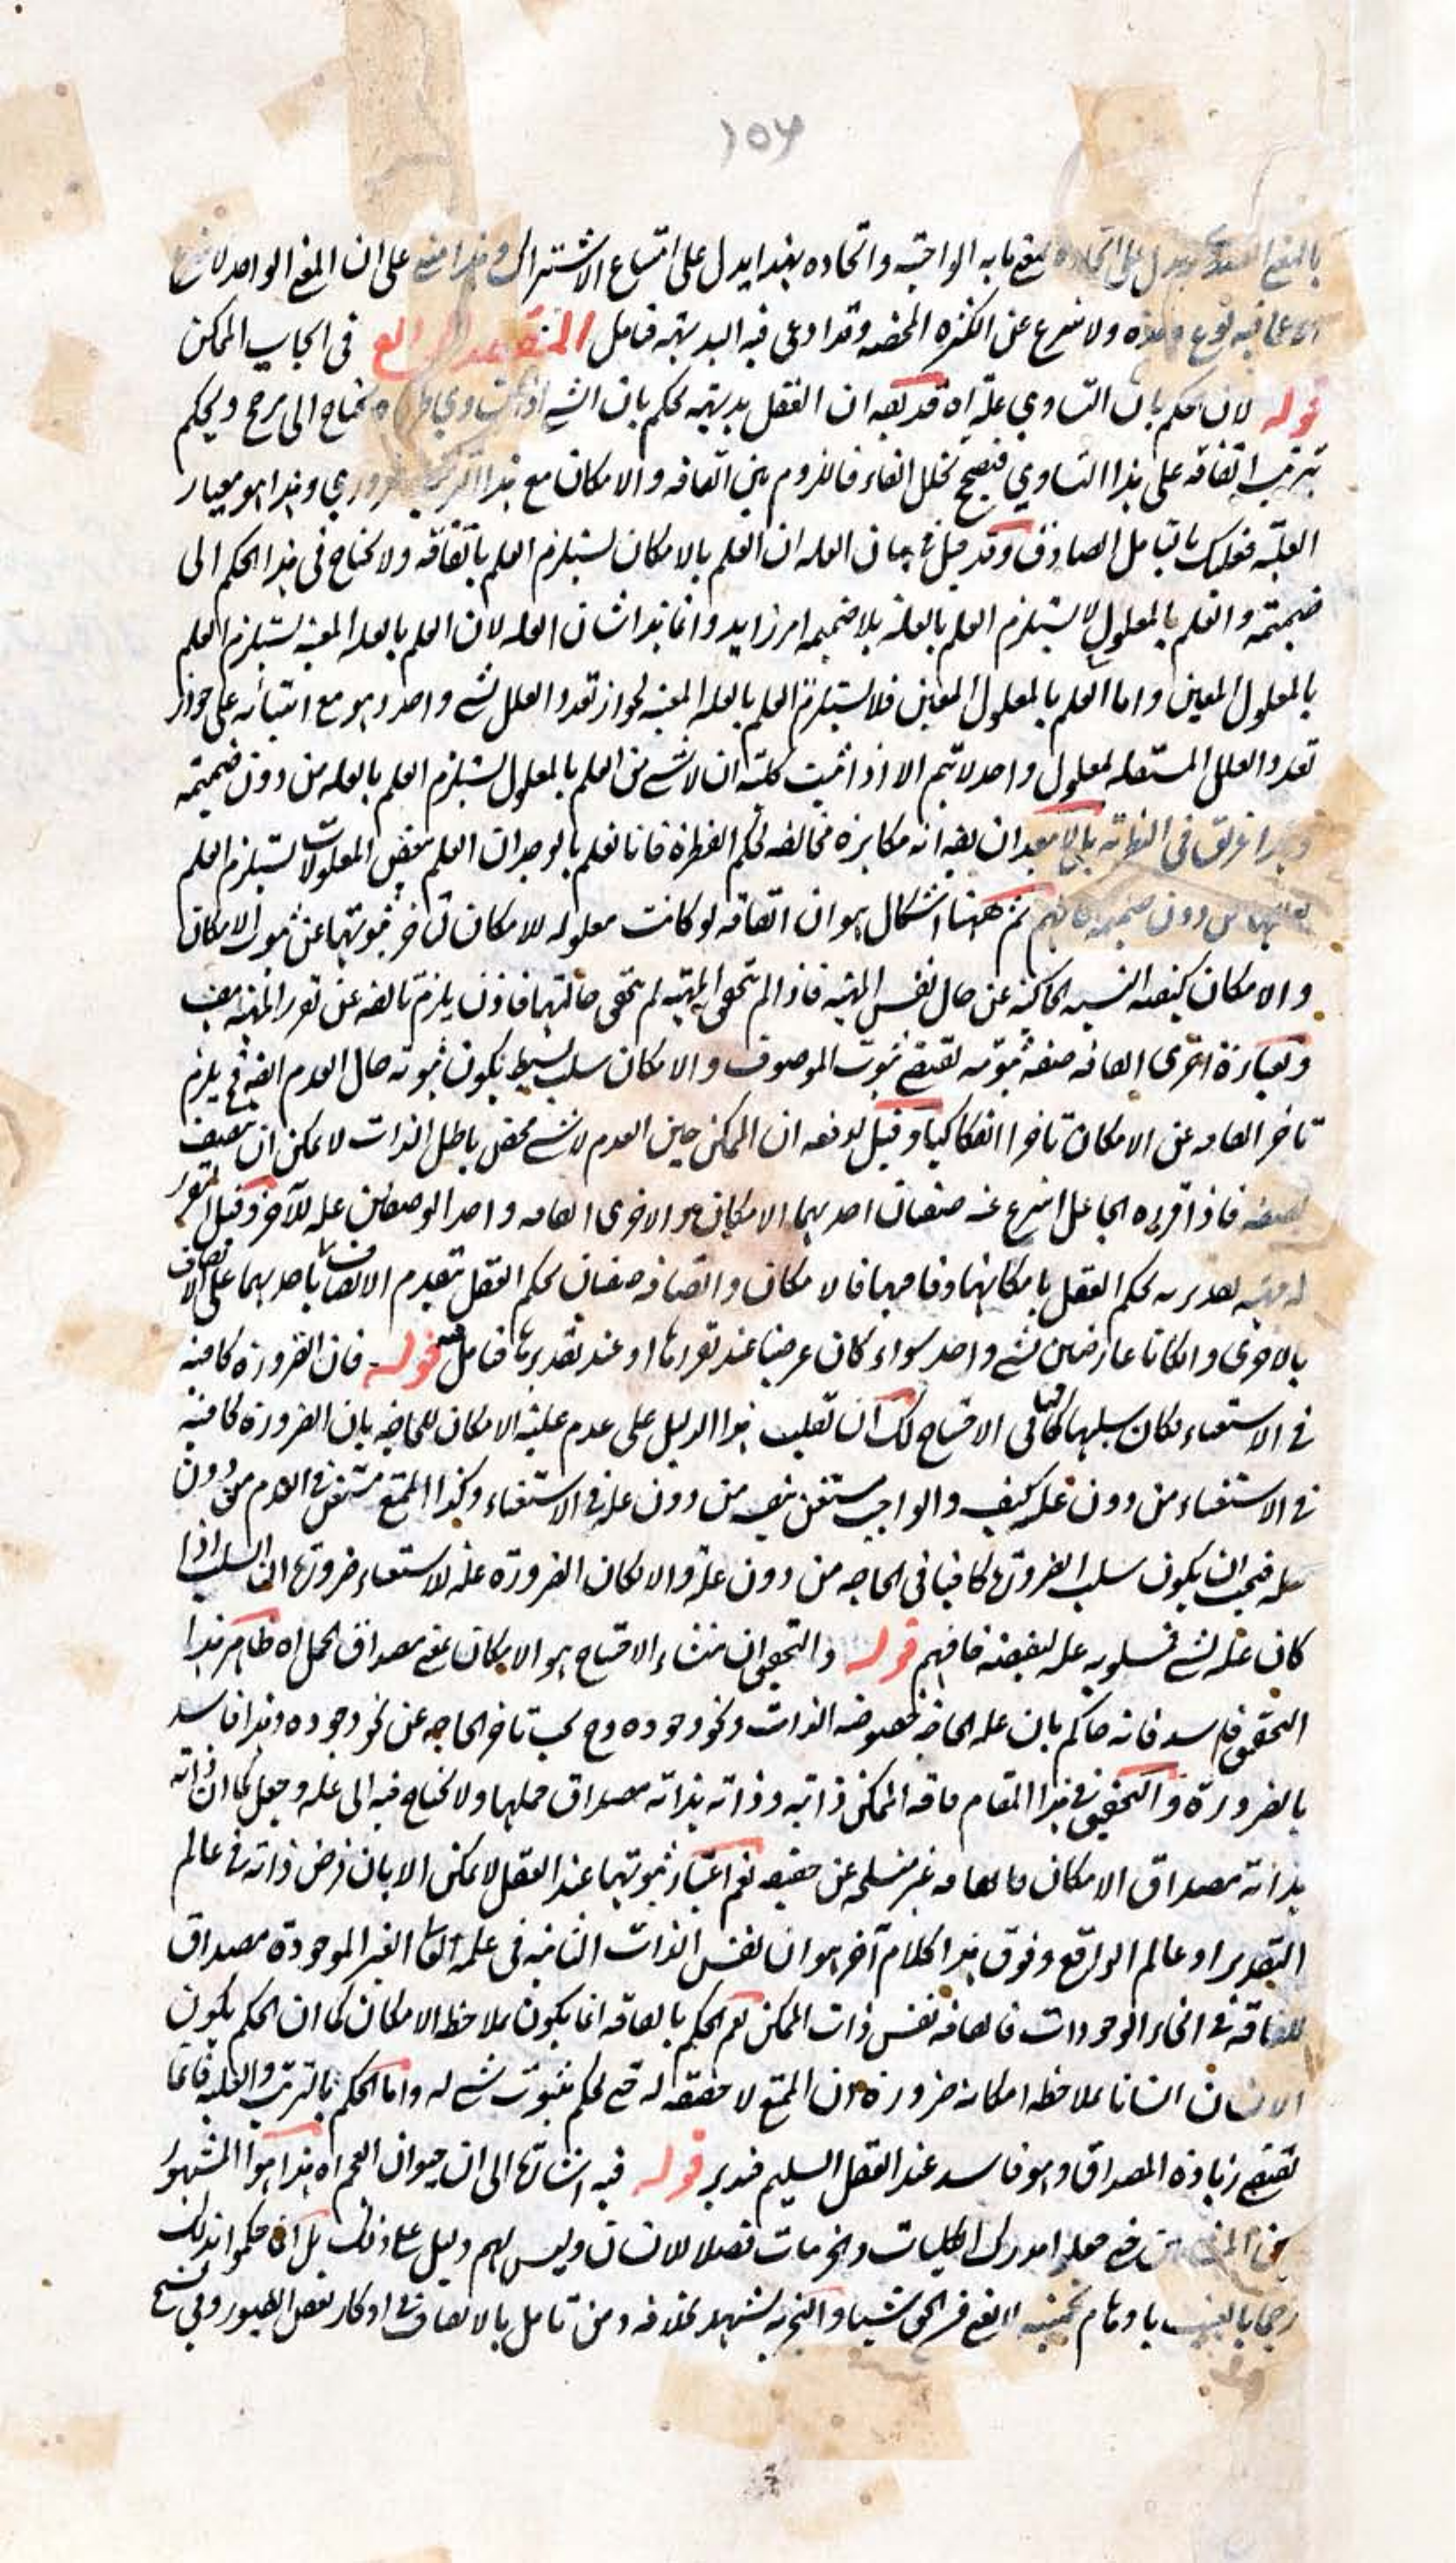 ١٥٦
بمعنى ما به الواجبية واتحاده بهذا يدل على امتناع الاشتراك على ان المعنى الواحد لا
ولا ينتزع عن الكثرة المحضة وقد ادعى فيه البديهة فتامل المقصد الرابع فى ايجاب الممكن
قوله لان الحكم بان التساوي علة اه قد يقه ان العقل بديهته يحكم بان الشي اذا تساوي يحتاج الى مرجح ويحكم
بترتب افتقاقه على هذا التساوي فيصح تخلل الفاء فاللزوم بين الفاقه والامكان مع هذا الترتيب ضروري وهذا هو معيار
العلية فعليك بالتامل الصادق وقد قيل فى بيان العله ان العلم بالامكان يستلزم العلم بالفاقه ولا يحتاج فى هذا الحكم الى
ضميمته والعلم بالمعلول لا يستلزم العلم بالعلة بلا ضميمه امر زايد وانما هذا شان العله لان العلم بالعله المعينه يستلزم العلم
بالمعلول المعين واما العلم بالمعلول المعين فلا يستلزم العلم بالعله المعينه لجواز تعدد العلل لشي واحد وهو مع ابتنائه على جواز
تعدد العلل المستقله لمعلول واحد لا يتم الا اذا اثبت كلية ان لا شي من العلم بالمعلول يستلزم العلم بالعله من دون ضميمته
ان يقه انه مكابره مخالفه لحكم الفطرة فانا نعلم بالوجدان العلم ببعض المعلولات يستلزم العلم
من دون ضميمه فافهم ثم ههنا اشكال هو ان الفاقه لو كانت معلوله للامكان لتاخر ثبوتها عن ثبوت الامكان
والامكان كيفيه النسبه الحاكيه عن حال نفس المهيه فاذا لم يتحقق المهيه لم يتحقق حالتها فاذن يلزم تاخره عن تقرر المهيه هف
وبعبارة اخرى الفاقه صفه ثبوتيه تقتضي ثبوت الموصوف والامكان سلب بسيط يكون ثبوته حال العدم ايضه فح يلزم
تاخر الفاقه عن الامكان تاخرا انفكاكيا وقيل لدفعه ان الممكن حين العدم لا شي محض باطل الذات لا يمكن ان يتصف
بصفه فاذا قرره الجاعل انتزع عنه صفتان احديهما الامكان والاخرى الفاقه واحد الوصفين علة للآخر وقيل المتقرر
له مهيه تقديريه يحكم العقل بامكانها وفاقها فالامكان والفاقه صفتان يحكم العقل بتقدم الاتصاف باحديهما على الاتصاف
بالاخرى وان كانا عارضين لشي واحد سواء كان عرضنا عند تقررها او عند تقديرها فتامل قوله فان الضرورة كافيه
فى الاستغناء فكان سلبها كافيا فى الاحتياج لك ان تقلب هذا الدليل على عدم علية الامكان للحاجه بان الضرورة كافيه
فى الاستغناء من دون علة كيف والواجب مستغن بنفسه من دون علة فى الاستغناء وكذا الممتنع مستغن فى العدم من دون
علة فيجب ان يكون سلب الضرورة كافيا فى الحاجه من دون علة والا لكان الضرورة علة للاستغناء ضرورة ان السلب اذا
كان علة لشي فمسلوبه علة لنقيضه فافهم قوله والتحقيق ان منشاء الاحتياج هو الامكان بمعنى مصداق الحمل اه ظاهر هذا
التحقيق فاسد فانه حاكم بان علة الحاجة خصوصه الذات ونحو وجوده وح يجب تاخر الحاجه عن نحو وجوده وهذا فاسد
بالضرورة والتحقيق فى هذا المقام فاقه الممكن ذاتيه وذاته بذاته مصداق حملها ولا يحتاج فيه الى علة وجعل كما ان ذاته
بذاته مصداق الامكان فالفاقه غير منسلخه عن حقيقه نعم اعتبار ثبوتها عند العقل لا يمكن الا بان فرض ذاته فى عالم
التقدير او عالم الواقع وفوق هذا كلام آخر هو ان نفس الذات الثابته فى علمه تعالى الغير الموجودة مصداق
للفاقه فى انحاء الوجودات فالفاقه نفس ذات الممكن نعم الحكم بالفاقه انما يكون بملاحظه الامكان كما ان الحكم بكون
الانسان انسانا بملاحظه امكانه ضرورة ان الممتنع لا حقيقه له حتى يحكم بثبوت شي له واما الحكم بالترتب والعليه فانما
تقتضي زيادة المصداق وهو فاسد عند العقل السليم فتدبر قوله فيه اشارة الى ان حيوان العجم اه هذا هو المشهور
حتى جعلوا مدرك الكليات والجزئيات فصلا للانسان وليس لهم دليل على ذلك بل ان حكموا بذلك
رجما بالغيب باوهام تخمينيه لا يغني من الحق شيئا والتجربه يشهد بخلافه ومن تامل بالانصاف فى اوكار بعض الطيور وفى نسج